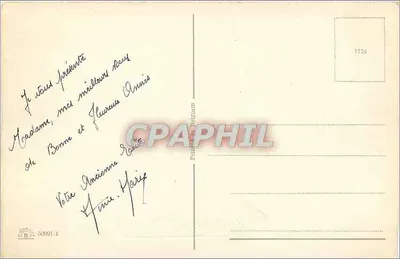 Je vous présente
Madame, mes meilleurs vœux
de Bonne et Heureuse Année
Votre Ancienne Elève
Annie-Marie
1126
CPAPHIL
Printed in Belgium